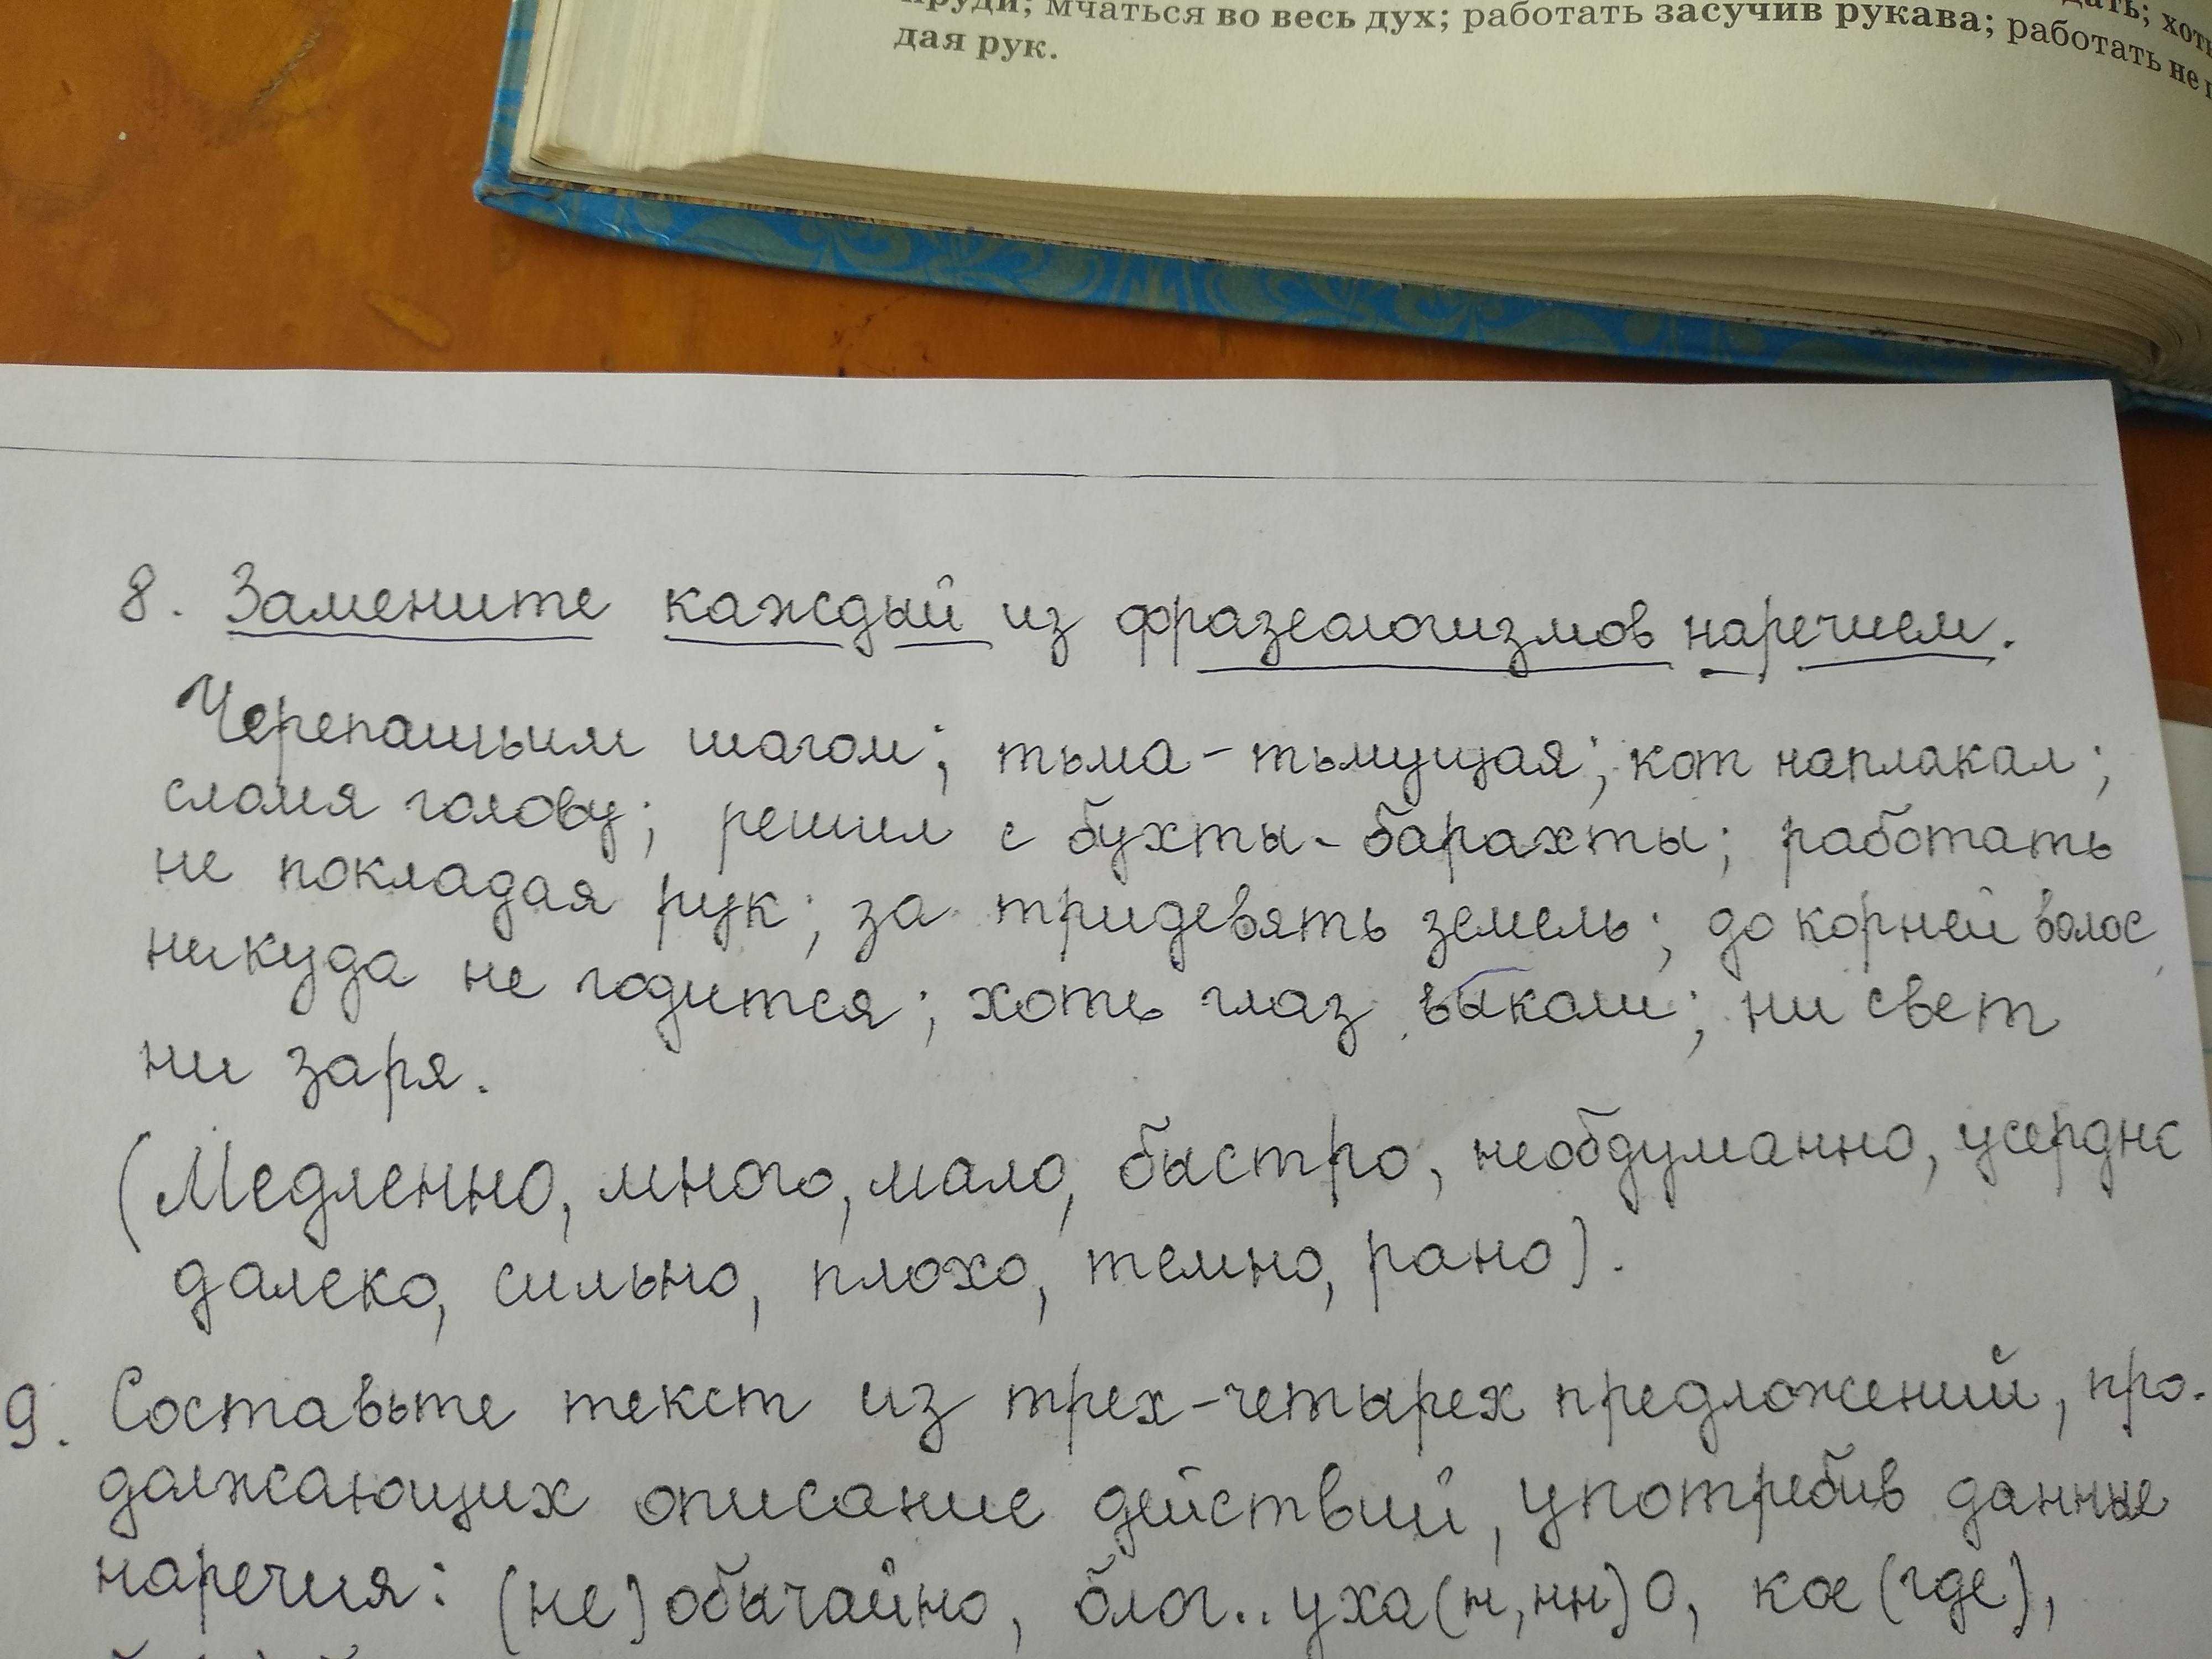 пруди; мчаться во весь дух; работать засучив рукава; работать не
дая рук.
8. Замените каждый из фразеологизмов наречием.
Черепашьим шагом; тьма-тьмущая; кот наплакал;
сломя голову; решил с бухты-барахты; работать
не покладая рук; за тридевять земель; до корней волос,
никуда не годится; хоть глаз выколи; ни свет
ни заря.
(Медленно, много, мало, быстро, необдуманно, усердно
далеко, сильно, плохо, темно, рано).
9. Составьте текст из трех-четырех предложений, про-
должающих описание действий, употребив данные
наречия: (не)обычайно, благ..уха(н,нн)о, кое(где),